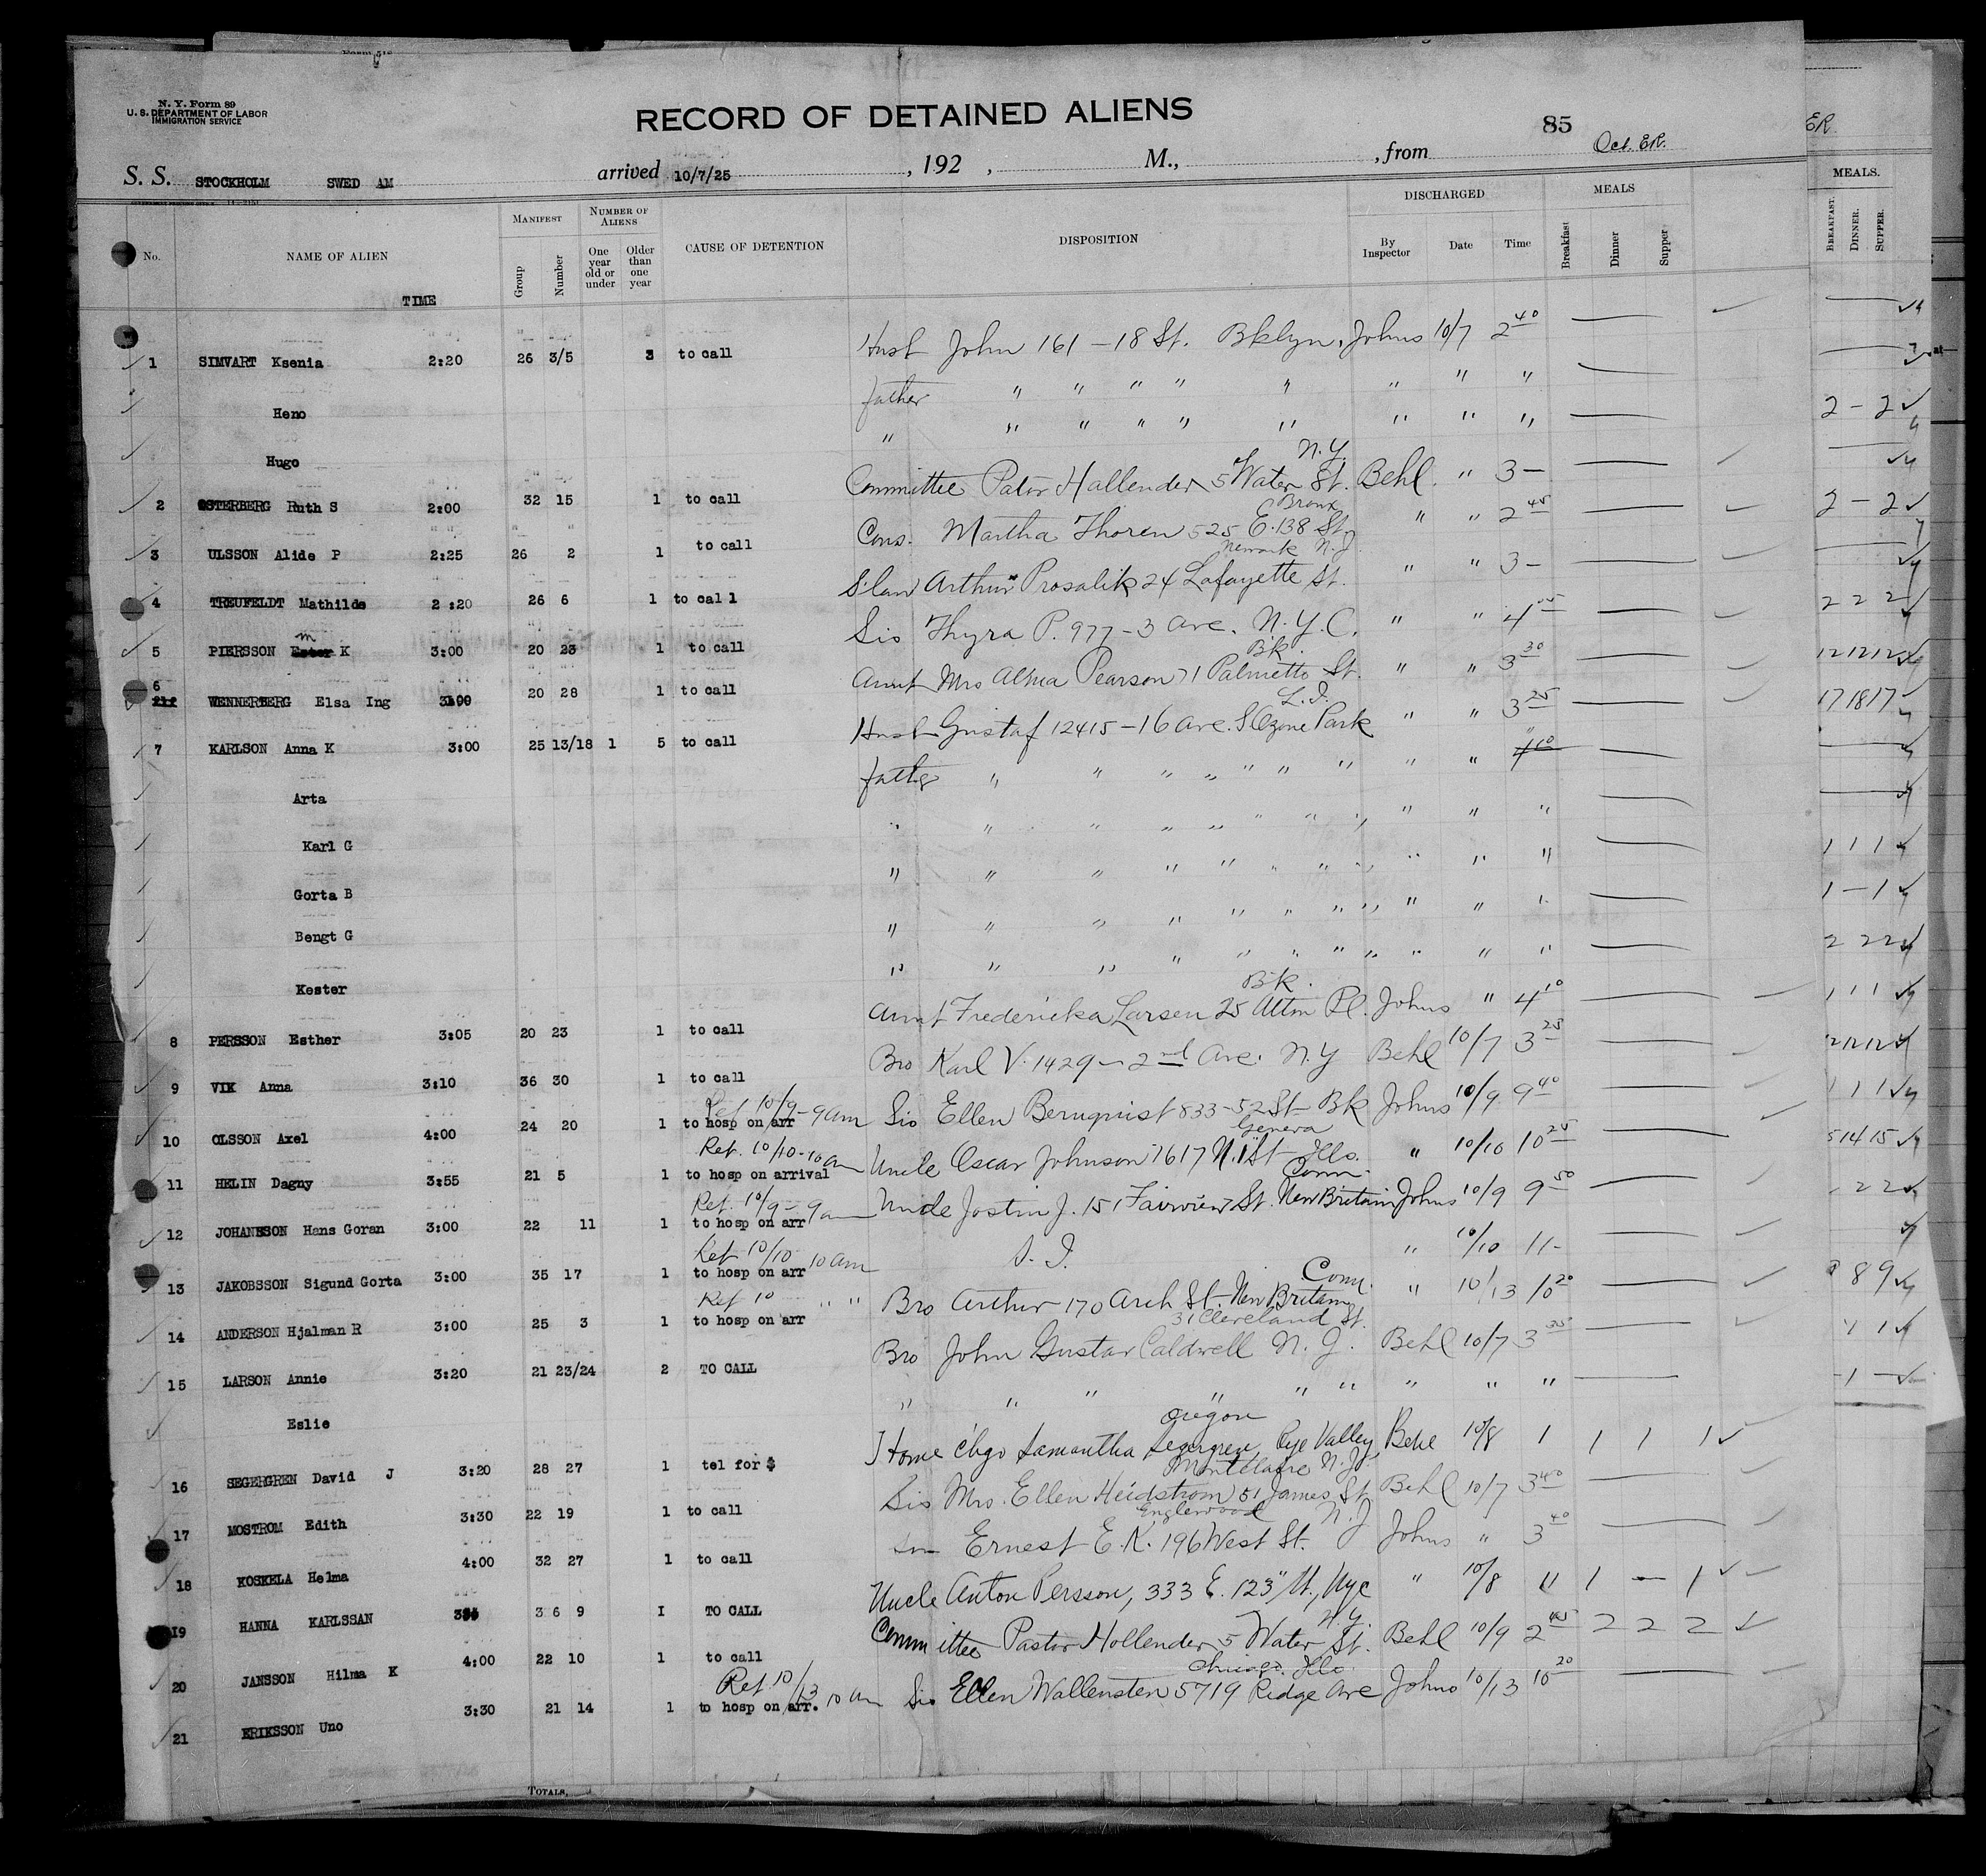 N. Y. Form 89
U. S. DEPARTMENT OF LABOR
IMMIGRATION SERVICE
RECORD OF DETAINED ALIENS
85
Oct. ER.
ER.
S. S. STOCKHOLM SWED AM arrived 10/7/25 , 192 , M., , from
No. NAME OF ALIEN TIME
MANIFEST Group Number
NUMBER OF ALIENS One year old or under Older than one year
CAUSE OF DETENTION
DISPOSITION
DISCHARGED By Inspector Date Time
MEALS Breakfast Dinner Supper
MEALS. BREAKFAST. DINNER. SUPPER.
1 SIMVART Ksenia 2:20 26 3/5 3 to call Husb John 161 - 18 St. Bklyn. Johns 10/7 2 40
Heno father " " " " " " " "
Hugo " " " " " " " " "
2 OSTERBERG Ruth S 2:00 32 15 1 to call Committee Pator Hallender 5 Water St. N.Y. Behl " 3 -
3 ULSSON Alide P 2:25 26 2 1 to call Cous. Martha Thoren 525 E. 138 St. Bronx " " 2 45
4 TREUFELDT Mathilde 2:20 26 6 1 to call S law Arthur Prosalik 24 Lafayette St. Newark N.J. " " 3 -
5 PIERSSON Ester m K 3:00 20 23 1 to call Sis Thyra P. 977 - 3 Ave. N.Y.C. " " 4
6 WENNERBERG Elsa Ing 3:00 20 28 1 to call Aunt Mrs Alma Pearson 71 Palmetto St. Bk. " " 3 30
7 KARLSON Anna K 3:00 25 13/18 1 5 to call Husb Gustaf 12415 - 16 Ave. S Ozone Park L.I. " " 3 25
Arta father " " " " " " " " " "
Karl G " " " " " " " " " " "
Gorta B " " " " " " " " " " "
Bengt G " " " " " " " " " " "
Kester " " " " " " " " " " "
8 PERSSON Esther 3:05 20 23 1 to call Aunt Fredericka Larsen 25 Alton Pl. Bk. Johns " 4 10
9 VIK Anna 3:10 36 30 1 to call Bro Karl V. 1429 - 2nd Ave. N.Y Behl 10/7 3 25
10 OLSSON Axel 4:00 24 20 1 to hosp on arr Ret 10/9 - 9 am Sis Ellen Bernquist 833 - 52 St - Bk Johns 10/9 9 40
11 HELIN Dagny 3:55 21 5 1 to hosp on arrival Ret. 10/10 - 10 am Uncle Oscar Johnson 7617 N. 1st St Geneva Ills. " 10/10 10 25
12 JOHANSSON Hans Goran 3:00 22 11 1 to hosp on arr Ret. 10/9 - 9 am Uncle Jostin J. 151 Fairview St. New Britain Conn. Johns 10/9 9 50
13 JAKOBSSON Sigund Gorta 3:00 35 17 1 to hosp on arr Ret 10/10 10 am S. I. " 10/10 11 -
14 ANDERSON Hjalman R 3:00 25 3 1 to hosp on arr Ret 10 " " Bro Arthur 170 Arch St. New Britain Conn. " 10/13 10 20
15 LARSON Annie 3:20 21 23/24 2 TO CALL Bro John Gustav Caldwell N.J. 31 Cleveland St. Behl 10/7 3 35
Eslie " " " " " " " " "
16 SEGERGREN David J 3:20 28 27 1 tel for $ Home c/bgo Samantha Segergren, Rye Valley, Oregon Behl 10/8 1 1 1 1
17 MOSTROM Edith 3:30 22 19 1 to call Sis Mrs. Ellen Heidstrom 51 James St. Montclaire N.J. Behl 10/7 3 40
18 KOSKELA Helma 4:00 32 27 1 to call Ernest E.K. 196 West St. Englewood N.J Johns " 3 40
19 HANNA KARLSSAN 36 9 I TO CALL Uncle Anton Persson, 333 E. 123" St., Nyc " 10/8 11 1 - 1
20 JANSSON Hilma K 4:00 22 10 1 to call Committee Pastor Hollender 5 Water St. N.Y. Behl 10/9 2 45 2 2 2
21 ERIKSSON Uno 3:30 21 14 1 to hosp on arr. Ret 10/13 10 am Sis Ellen Wallensten 5719 Ridge Ave Chicago. Ills. Johns 10/13 10 20
TOTALS,